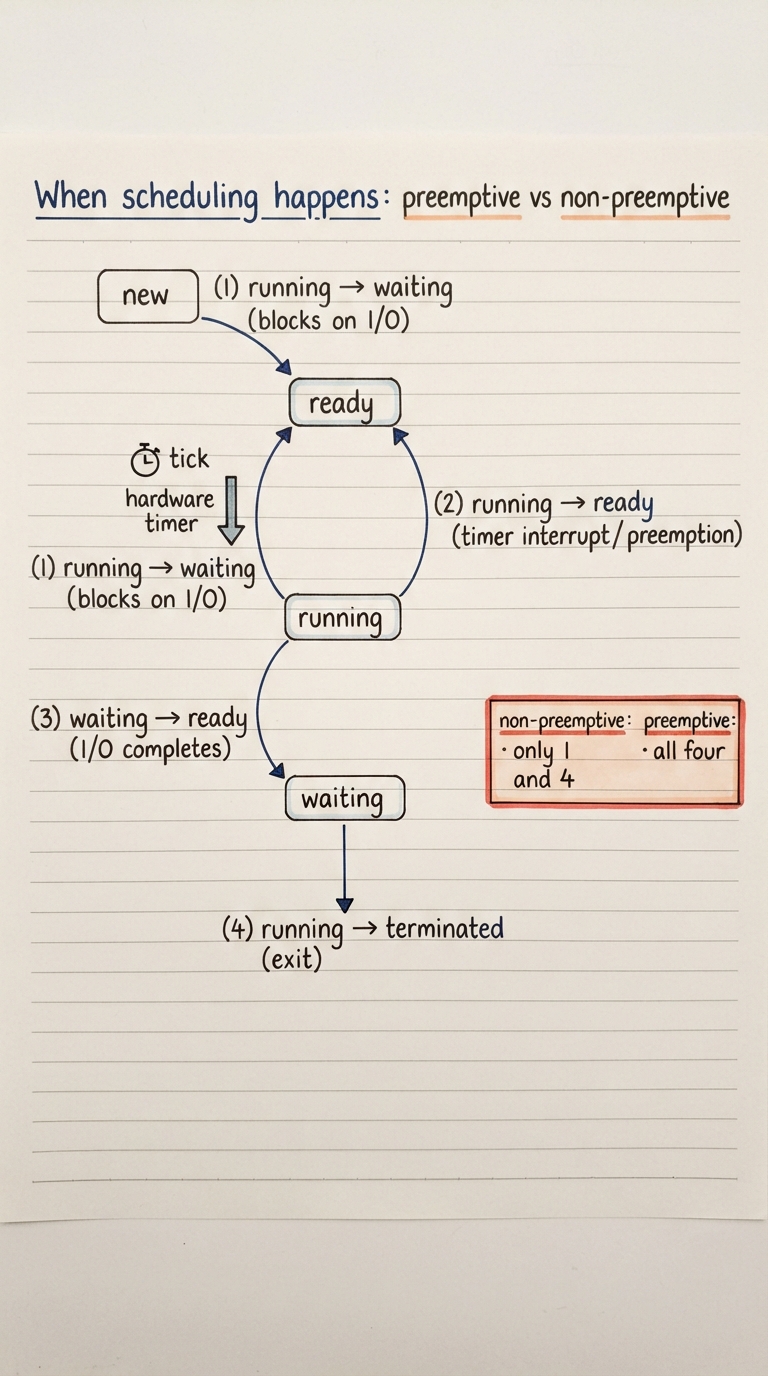 When scheduling happens: preemptive vs non-preemptive
new
(1) running → waiting
(blocks on I/O)
ready
tick
hardware
timer
(2) running → ready
(timer interrupt/preemption)
(1) running → waiting
(blocks on I/O)
running
(3) waiting → ready
(I/O completes)
non-preemptive:
• only 1
and 4
preemptive:
• all four
waiting
(4) running → terminated
(exit)